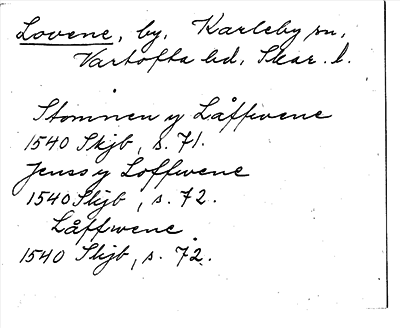 Lovene, by, Karleby sn,
Vartofta hd, Skar. l.
Stommen y Låffwene
1540 Skjb, s. 71.
Jenss y Loffwene
1540 Skjb, s. 72.
Låffwene
1540 Skjb, s. 72.